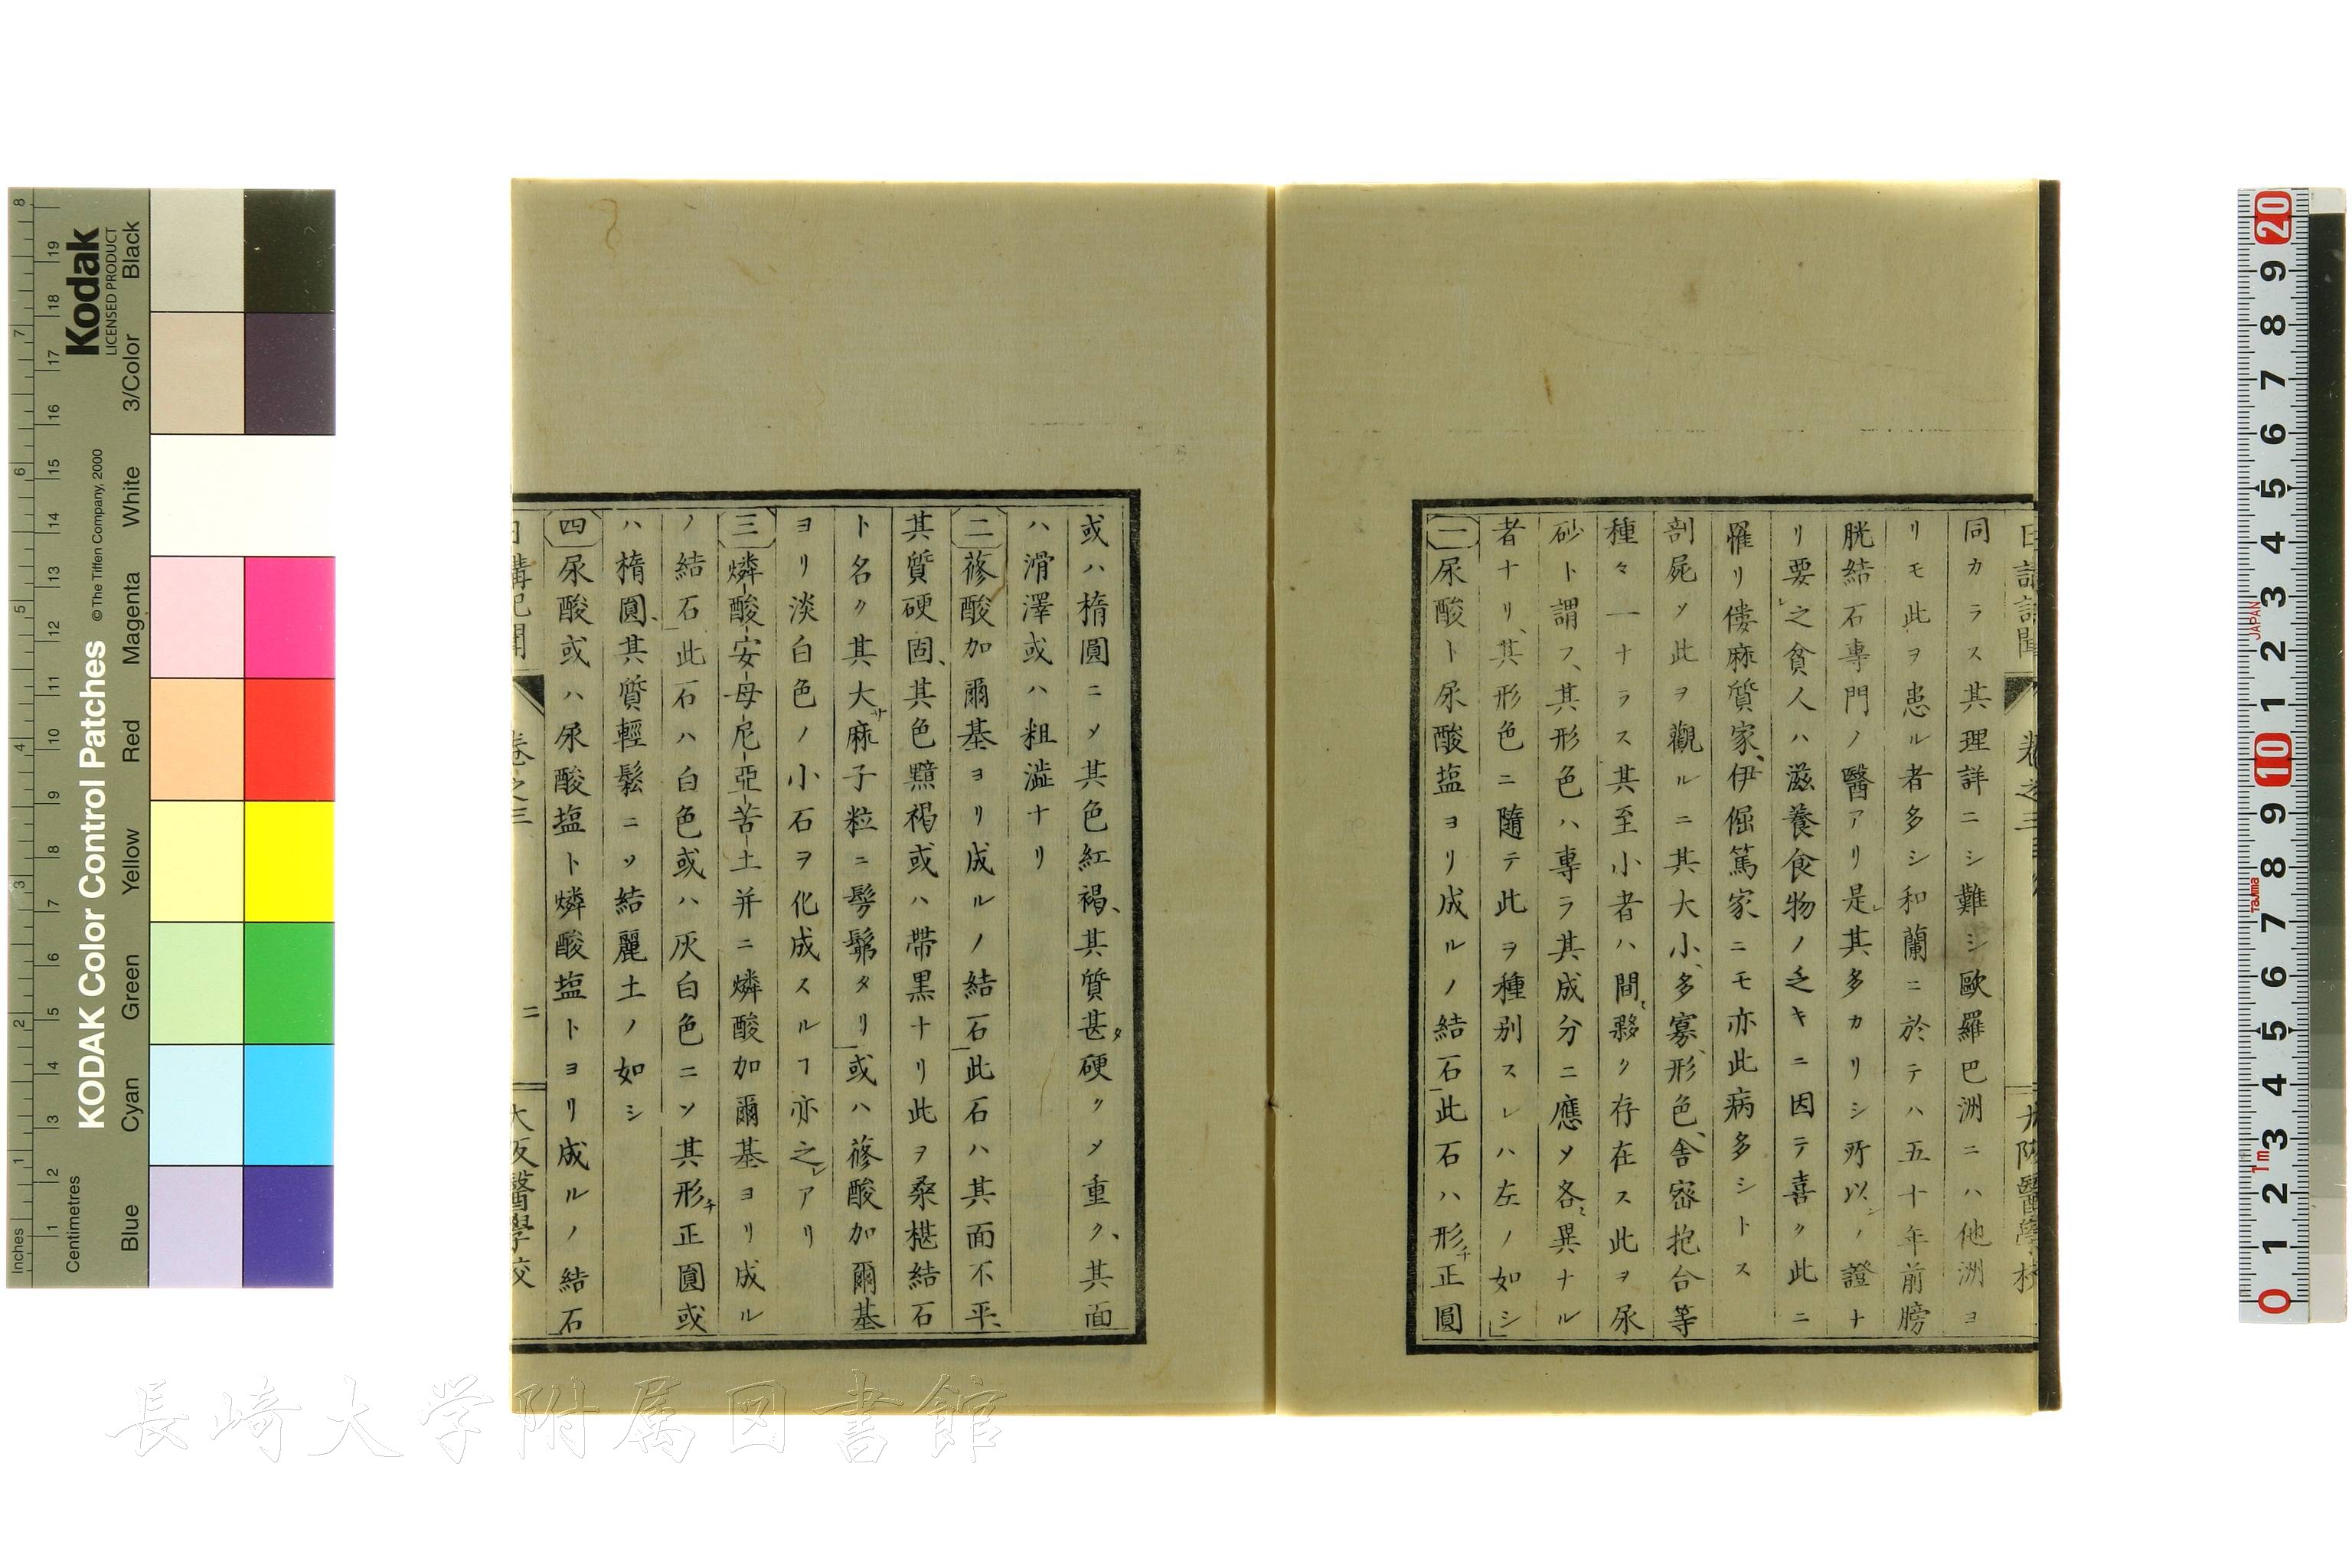 日講記聞 卷之三 大阪醫學校
同カラス其理詳ニシ難シ歐羅巴洲ニハ他洲ヨ
リモ此ヲ患ル者多シ和蘭ニ於テハ五十年前膀
胱結石專門ノ醫アリ是レ其多カリシ所以ノ證ト
リ要レ之貧人ハ滋養食物ノ乏キニ因テ喜ク此ニ
罹リ僂麻質家、伊倔篤家ニモ亦此病多シトス
剖屍ノ此ヲ觀ルニ其大小、多寡、形色、舍密抱合等
種々一ナラス其至小者ハ間ミ夥ク存在ス此ヲ尿
砂ト謂フ、其形色ハ專ラ其成分ニ應メ各ミ異ナル
者ナリ、其形色ニ隨テ此ヲ種別スレハ左ノ如シ
一 尿酸ト尿酸塩ヨリ成ルノ結石 此石ハ形チ正圓
或ハ楕圓ニメ其色紅褐、其質甚タ硬クメ重ク、其面
ハ滑澤或ハ粗澁ナリ
二 蓚酸加爾基ヨリ成ルノ結石 此石ハ其面不平、
其質硬固、其色黯褐或ハ帶黒ナリ此ヲ桑椹結石
ト名ク其大サ麻子粒ニ髣髴タリ 或ハ蓚酸加爾基
ヨリ淡白色ノ小石ヲ化成スルヿ亦之レアリ
三 燐酸安母尼亞苦土并ニ燐酸加爾基ヨリ成ル
ノ結石 此石ハ白色或ハ灰白色ニメ其形チ正圓或
ハ楕圓、其質輕鬆ニメ結麗土ノ如シ
四 尿酸或ハ尿酸塩ト燐酸塩トヨリ成ルノ結石
日講記聞 卷之三 二 大阪醫學校
KODAK Color Control Patches
© The Tiffen Company, 2000
Kodak
LICENSED PRODUCT
Inches 1 2 3 4 5 6 7 8
Centimetres 1 2 3 4 5 6 7 8 9 10 11 12 13 14 15 16 17 18 19
Blue Cyan Green Yellow Red Magenta White 3/Color Black
0 1 2 3 4 5 6 7 8 9 10 1 2 3 4 5 6 7 8 9 20
1m Tajima JAPAN
長崎大学附属図書館